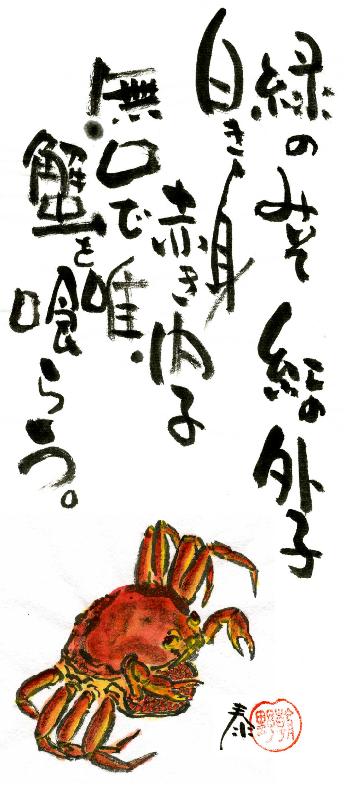 緑のみそ 紅の外子
白き身
赤き内子
無口で唯
蟹を喰らう。
泰